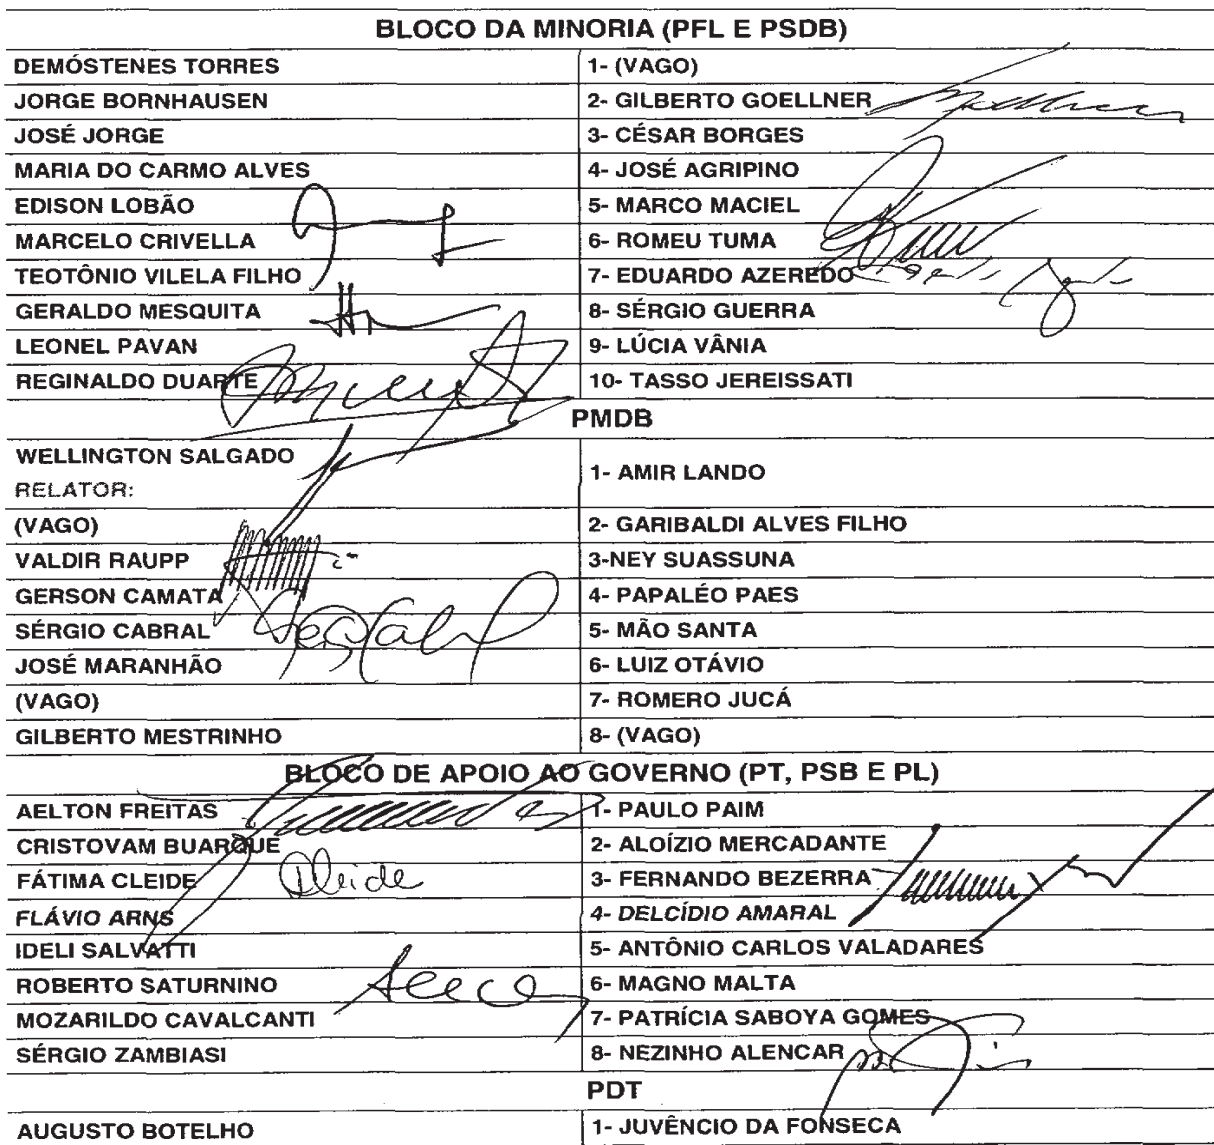 BLOCO DA MINORIA (PFL E PSDB)
DEMÓSTENES TORRES 1- (VAGO)
JORGE BORNHAUSEN 2- GILBERTO GOELLNER
JOSÉ JORGE 3- CÉSAR BORGES
MARIA DO CARMO ALVES 4- JOSÉ AGRIPINO
EDISON LOBÃO 5- MARCO MACIEL
MARCELO CRIVELLA 6- ROMEU TUMA
TEOTÔNIO VILELA FILHO 7- EDUARDO AZEREDO
GERALDO MESQUITA 8- SÉRGIO GUERRA
LEONEL PAVAN 9- LÚCIA VÂNIA
REGINALDO DUARTE 10- TASSO JEREISSATI
PMDB
WELLINGTON SALGADO
RELATOR:
1- AMIR LANDO
(VAGO) 2- GARIBALDI ALVES FILHO
VALDIR RAUPP 3-NEY SUASSUNA
GERSON CAMATA 4- PAPALÉO PAES
SÉRGIO CABRAL 5- MÃO SANTA
JOSÉ MARANHÃO 6- LUIZ OTÁVIO
(VAGO) 7- ROMERO JUCÁ
GILBERTO MESTRINHO 8- (VAGO)
BLOCO DE APOIO AO GOVERNO (PT, PSB E PL)
AELTON FREITAS 1- PAULO PAIM
CRISTOVAM BUARQUE 2- ALOÍZIO MERCADANTE
FÁTIMA CLEIDE Cleide 3- FERNANDO BEZERRA
FLÁVIO ARNS 4- DELCÍDIO AMARAL
IDELI SALVATTI 5- ANTÔNIO CARLOS VALADARES
ROBERTO SATURNINO 6- MAGNO MALTA
MOZARILDO CAVALCANTI 7- PATRÍCIA SABOYA GOMES
SÉRGIO ZAMBIASI 8- NEZINHO ALENCAR
PDT
AUGUSTO BOTELHO 1- JUVÊNCIO DA FONSECA